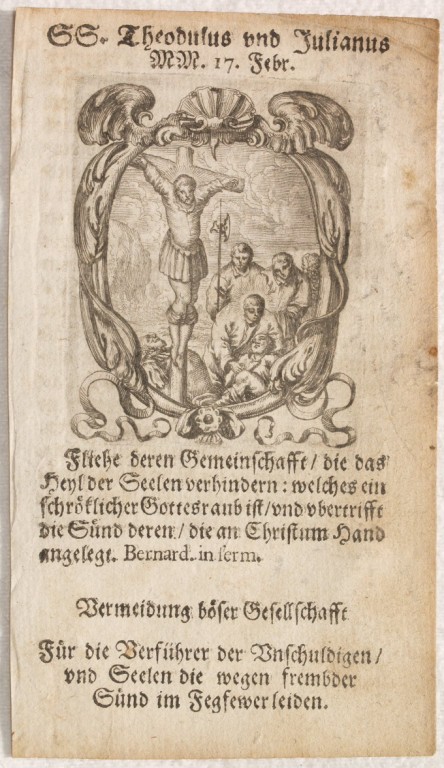 SS. Theodulus vnd Julianus
MM. 17. Febr.
Fliehe deren Gemeinschafft / die das
Heyl der Seelen verhindern : welches ein
schröklicher Gottesraub ist / vnd vbertrifft
die Sünd deren / die an Christum Hand
angelegt. Bernard. in serm.
Vermeidung böser Gesellschafft
Für die Verführer der Vnschuldigen /
vnd Seelen die wegen frembder
Sünd im Fegfewer leiden.